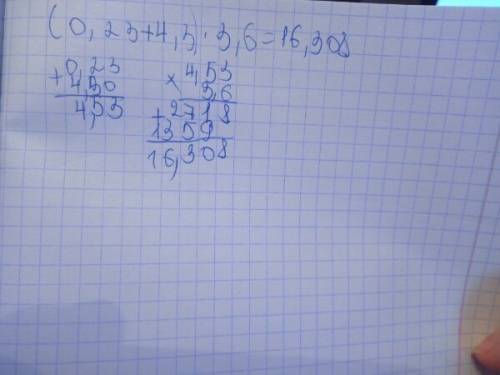 (0,23+4,3)·3,6=16,308
0,23
+4,30
4,53
4,53
× 3,6
+2718
1359
16,308